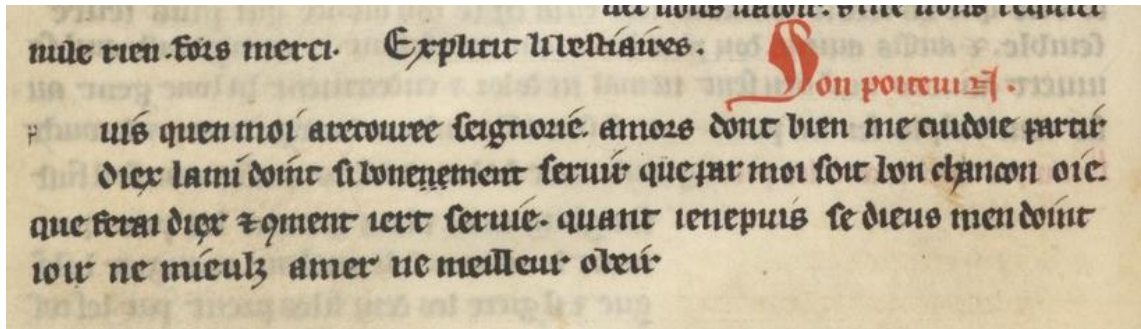 nule rien . fors merci. Explicit li bestiaires.
Son
p uis quen moi a recouree seignorie. amors dont bien me cuidoie partir
diex lami doint si bonenement seruir que par moi soit bon chancon oie.
que ferai diex ⁊ ꝯment iert seruie. quant ie ne puis se dieus men doint
ioir ne mieulz amer ne meilleur obeir